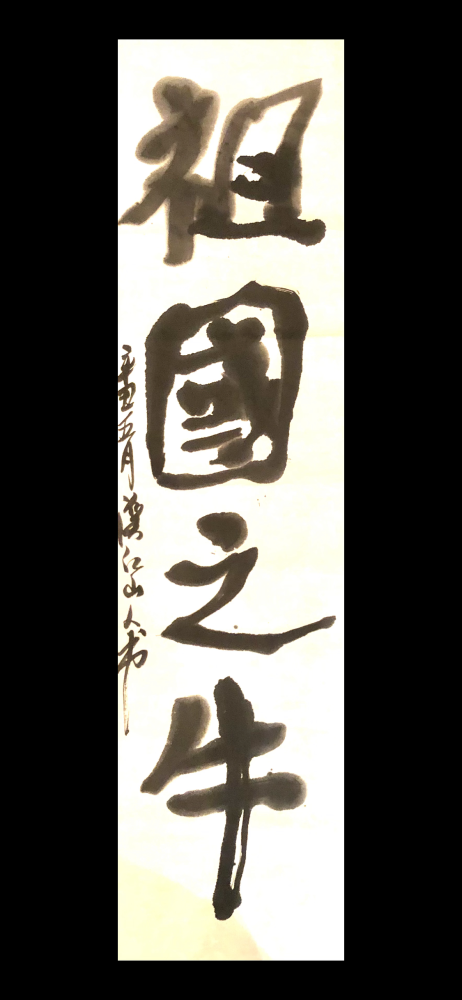 祖國之牛
辛丑五月漢江山人书